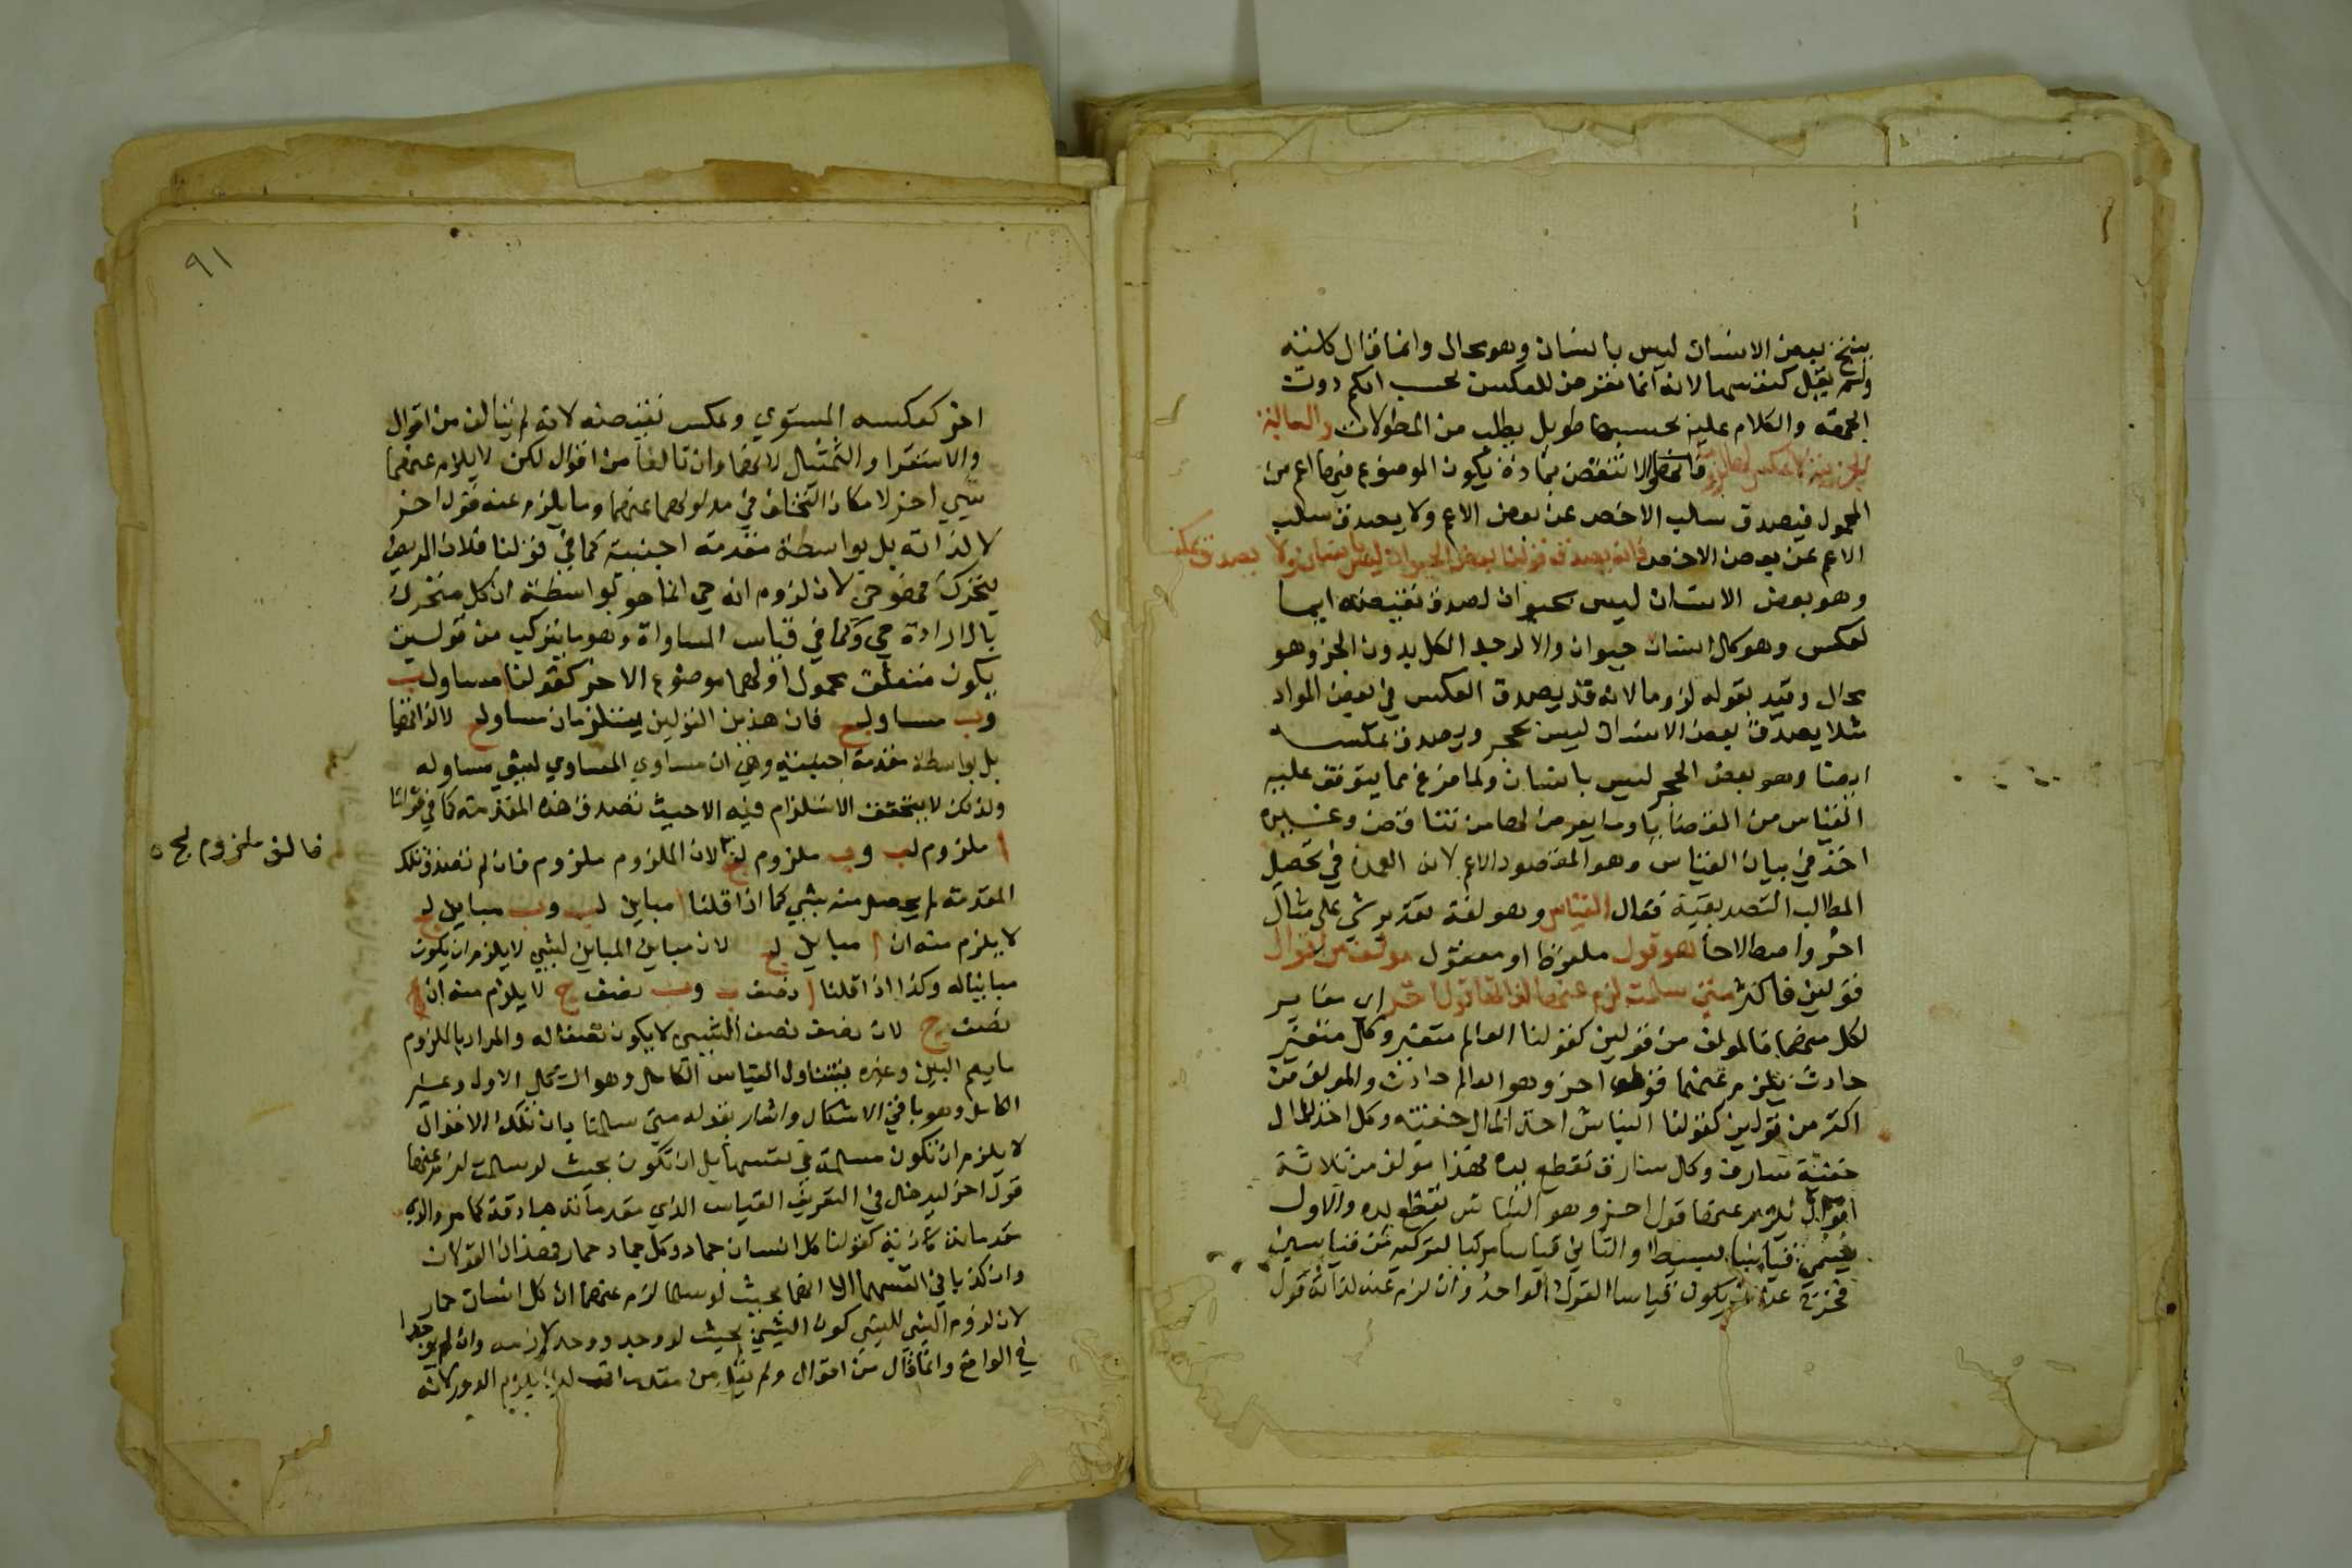 ينتج بعض الانسان ليس بانسان وهو محال وانما قال كليته
ولم يقل كنفسها لانه انما تعرض للعكس بحسب الكم دون
الجهة والكلام عليه بحسبها طويل يطلب من المطولات والسالبة
الجزئية لا عكس لها لزوما فانها لا تنتقض بمادة يكون الموضوع فيها اعم من
المحمول فيصدق سلب الاخص عن بعض الاعم ولا يصدق سلب
الاعم عن بعض الاخص فانه يصدق قولنا بعض الحيوان ليس بانسان ولا يصدق عكسه
وهو بعض الانسان ليس بحيوان لصدق نقيضه ايها
لعكس وهو كل انسان حيوان والا لوجد الكل بدون الجزء وهو
محال وقيد بقوله لزوما لانه قد يصدق العكس في بعض المواد
مثلا يصدق بعض الانسان ليس بحجر ويصدق عكسه
ايضا وهو بعض الحجر ليس بانسان ولما فرغ مما يتوقف عليه
القياس من القضايا وما يعرض لها من تناقض وغيره
اخذ في بيان القياس وهو المقصود الاعم لانه العمدة في تحصيل
المطالب التصديقية فقال القياس وهو لغة تقدير شي على مثال
اخر واصطلاحا هو قول ملفوظ او معقول مؤلف من اقوال
قولين فاكثر متى سلمت لزم عنها لذاتها قول اخر اي مغاير
لكل منها فالمولف من قولين كقولنا العالم متغير وكل متغير
حادث يلزم عنهما قول اخر وهو العالم حادث والمولف من
اكثر من قولين كقولنا النباش اخذ المال خفية وكل اخذ للمال
خفية سارق وكل سارق تقطع يده فهذا مولف من ثلاثة
اقوال يلزم عنها قول اخر وهو النباش تقطع يده والاول
يسمى قياسا بسيطا والثاني قياسا مركبا لتركبه من قياسين
فخرج عن ان يكون قياسا القول الواحد وان لزم عنه لذاته قول
٩١
اخر كعكسه المستوي وعكس نقيضه لانه لم يتالف من اقوال
والاستقرا والتمثيل لانهما وان تالفا من اقوال لكن لا يلزم عنهما
شي اخر لامكان التخلف في مدلولهما عنهما وما يلزم عنه قول اخر
لا لذاته بل بواسطة مقدمة اجنبية كما في قولنا فلان المريض
يتحرك فهو حي لان لزوم انه حي انما هو بواسطة ان كل متحرك
بالارادة حي وكما في قياس المساواة وهو ما يتركب من قولين
يكون متعلق محمول اولهما موضوع الاخر كقولنا ا مساو لب
وب مساو لج فان هذين القولين يستلزمان ا مساو لج لا لذاتهما
بل بواسطة مقدمة اجنبية وهي ان مساوي المساوي لشي مساو له
ولذلك لا يتحقق الاستلزام فيه الا حيث تصدق هذه المقدمة كما في قولنا
ا ملزوم لب وب ملزوم لج لان الملزوم ملزوم فان لم تصدق تلك
فالف ملزوم لج
المقدمة لم يحصل منه شي كما اذا قلنا ا مباين لب وب مباين لج
لا يلزم منه ان ا مباين لج لان مباين المباين لشي لا يلزم ان يكون
مباينا له وكذا اذا قلنا ا نصف ب وب نصف ج لا يلزم منه ان ا
نصف ج لان نصف نصف الشي لا يكون نصفا له والمراد باللزوم
ما يعم البين وغيره فيتناول القياس الكامل وهو الشكل الاول وغير
الكامل وهو باقي الاشكال واشار بقوله متى سلمنا بان تلك الاقوال
لا يلزم ان تكون مسلمة في نفسها بل ان تكون بحيث لو سلمت لزم عنها
قول اخر ليدخل في التعريف القياس الذي مقدماته صادقة كما مر والذي
مقدماته كاذبة كقولنا كل انسان جماد وكل جماد حمار فهذان القولان
وان كذبا في انفسهما الا انهما بحيث لو سلما لزم عنهما ان كل انسان حمار
لان لزوم الشي للشي كون الشي بحيث لو وجد وجد لازمه وان لم يوجدا
في الواقع وانما قال من اقوال ولم يقل من مقدمات لئلا يلزم الدور لانه